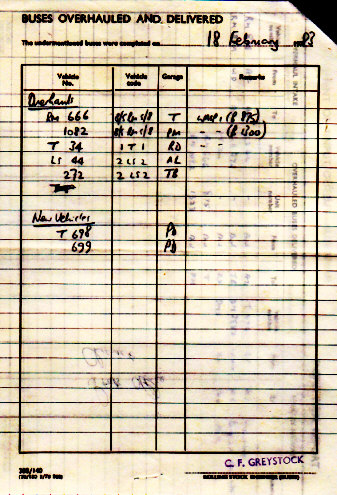 BUSES OVERHAULED AND DELIVERED
The undermentioned buses were completed on 18 February 1983
Vehicle No. Vehicle code Garage Remarks
Overhauls
RM 666 T (B 875)
1082 PM - - (B 1300)
T 34 1 T 1 RD - -
LS 44 2 LS 2 AL
272 2 LS 2 TB
New Vehicles
T 698 PD
699 PD
C. F. GREYSTOCK
ROLLING STOCK ENGINEER (BUSES)